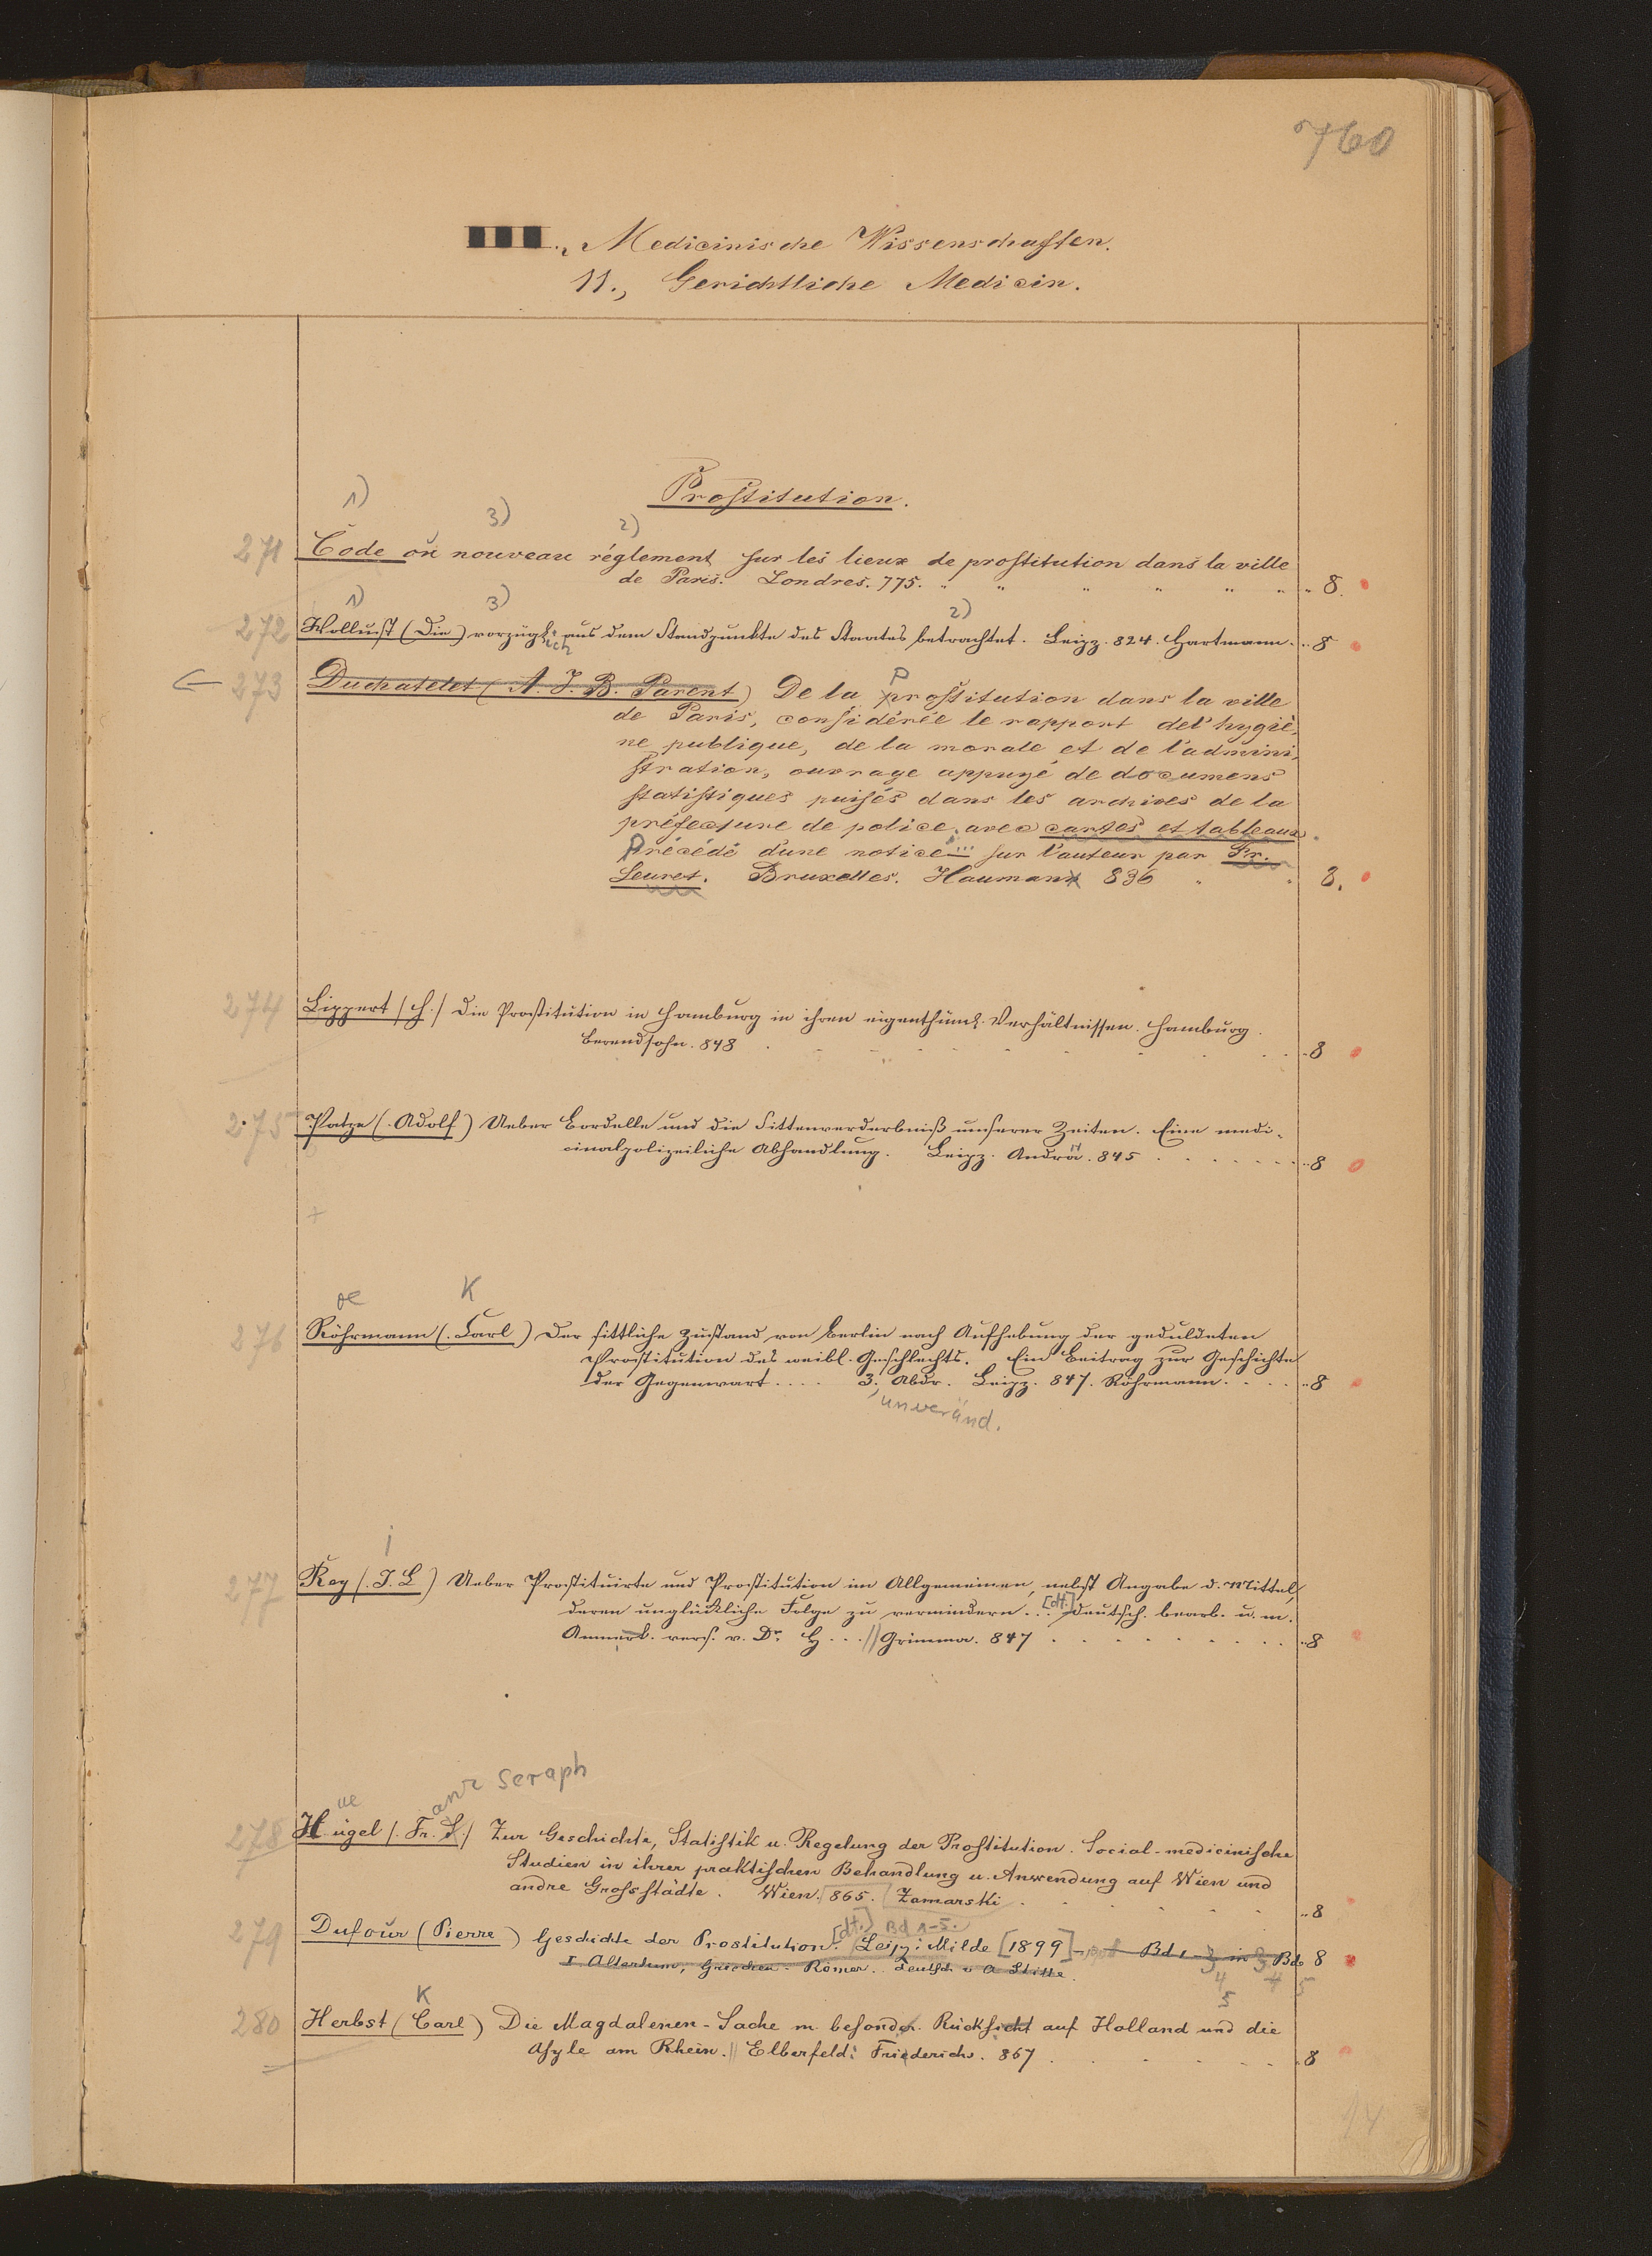 760
Medicinische Wissenschaften.
11., Gerichtliche Medicin.
Prostitution.
1) 3) 2)
271 Code ou nouveau réglement sur les lieux de prostitution dans la ville
de Paris. Londres. 775. 8.
1) 3) 2)
272 Wollust (Die) vorzügl. aus dem Standpunkte des Staates betrachtet. Leipz. 824. Hartmann. 8
lich
273 Duchatelet (A. J. B. Parent) De la prostitution dans la ville
P
de Paris, considérée le rapport de l'hygiè-
ne publique, de la morale et de l'admini-
stration, ouvrage appuyé de documens
statistiques puisés dans les archives de la
préfecture de police, avec cartes et tableaux.
Précédé d'une notice ... sur l'auteur par Fr.
Leuret. Bruxelles. Hauman 836 8.
274 Lippert (H.) Die Prostitution in Hamburg in ihren eigenthüml. Verhältnissen. Hamburg.
Berendsohn. 848 8
275 Patze (Adolf) Ueber Bordelle und die Sittenverderbniß unserer Zeiten. Eine medi-
cinalpolizeiliche Abhandlung. Leipz. Andrä. 845 8
+
oe K
276 Röhrmann (Carl) Der sittliche Zustand von Berlin nach Aufhebung der geduldeten
Prostitution des weibl. Geschlechts. Ein Beitrag zur Geschichte
der Gegenwart .... 3. Abdr. Leipz. 847. Röhrmann. 8
unveränd.
i
277 Rey (J. L) Ueber Prostituirte und Prostitution im Allgemeinen, nebst Angabe d. Mittel,
deren unglückliche Folge zu vermindern ... [dt.] deutsch. bearb. u. m.
Anmerk. vers. v. Dr. H ... // Grimma. 847 8
ue anz Seraph
278 Hügel (Fr. S.) Zur Geschichte, Statistik u. Regelung der Prostitution. Social-medicinische
Studien in ihrer praktischen Behandlung u. Anwendung auf Wien und
andre Grossstädte. Wien. 865. Zamarski 8
[dt.] Bd 1-5.
279 Dufour (Pierre) Geschichte der Prostitution. Leipz: Milde [1899] Bd 1 - 3 in 3 Bd 8
I Altertum, Griechen. Römer. Deutsch v A Stille.
4 4 5
5
K
280 Herbst (Carl) Die Magdalenen-Sache m. besondr. Rücksicht auf Holland und die
Asyle am Rhein. // Elberfeld: Friederichs. 867 8
14